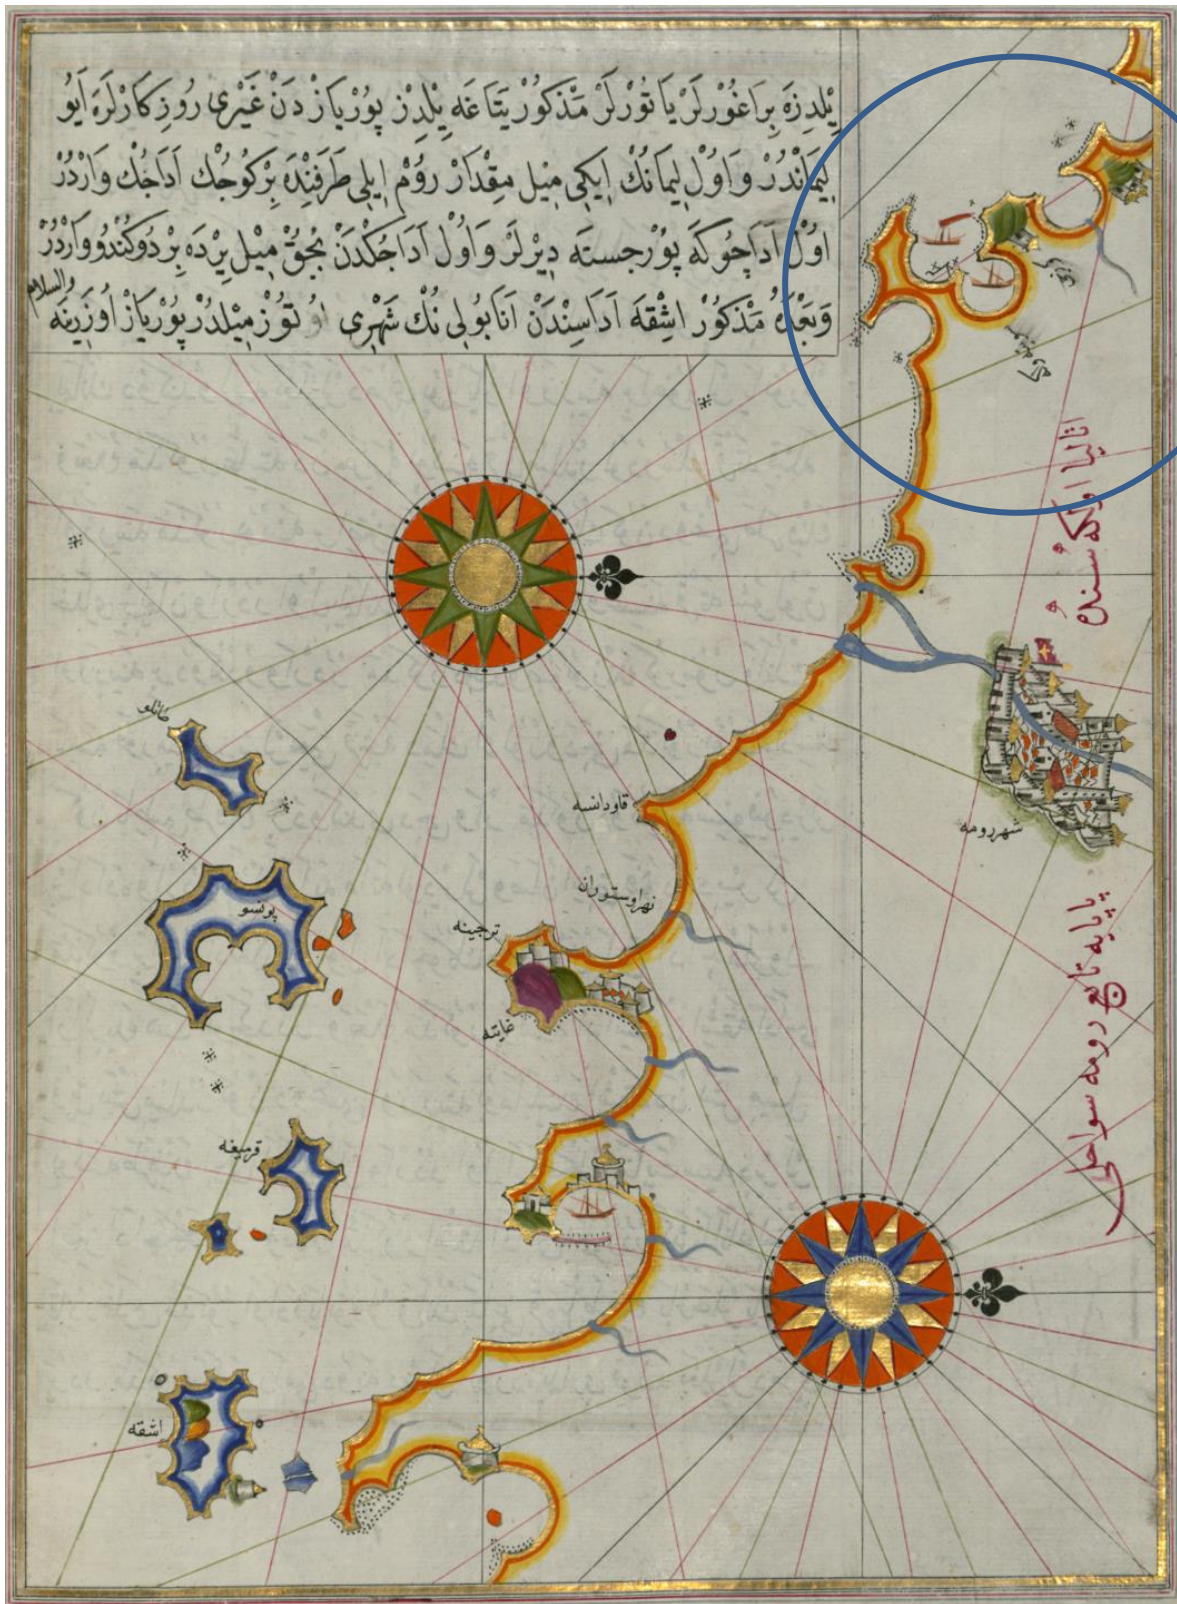 يٖلدِزَه بِرَاغُورْلَرْ يَا تُورْلَرْ مَذكُورْ يَتَاغَه يٖلدِزْ پُورْيَازْ دَنْ غَيْرِى رُوزِكَارْلَرَه اَيُو
لِيمَانْدُرْ وَاوُلْ لِيمَانُكْ اِيكِى مِيلْ مِقْدَارْ رُومْ اِيلِى طَرَفِنْدَه بِرْ كُوجُكْ اَدَاجُكْ وَارْدُرْ
اوُلْ اَدَاجُوكَه پُورْجسته دِيْرلَرْ وَاوُلْ اَدَاجُكدَنْ بُجُقْ مِيل يِرْدَه بِرْ دُوكَنْدُو وَارْدُرْ
وَبَعْدَهُ مَذكُورْ اِشْقَه اَدَاسِنْدَنْ اَنَابُولِى نُكْ شَهْرِى اوُتُوزْ مِيْلدُرْ پُورْيَازْ اُوزَرِينَه
والسلام
اتاليا اولكه سندۀ
شهر رومه
پاپايه تابع رومه سواحلى
قاودانسه
نهر اوستوران
ترجينه
غايته
پونسو
اشقه